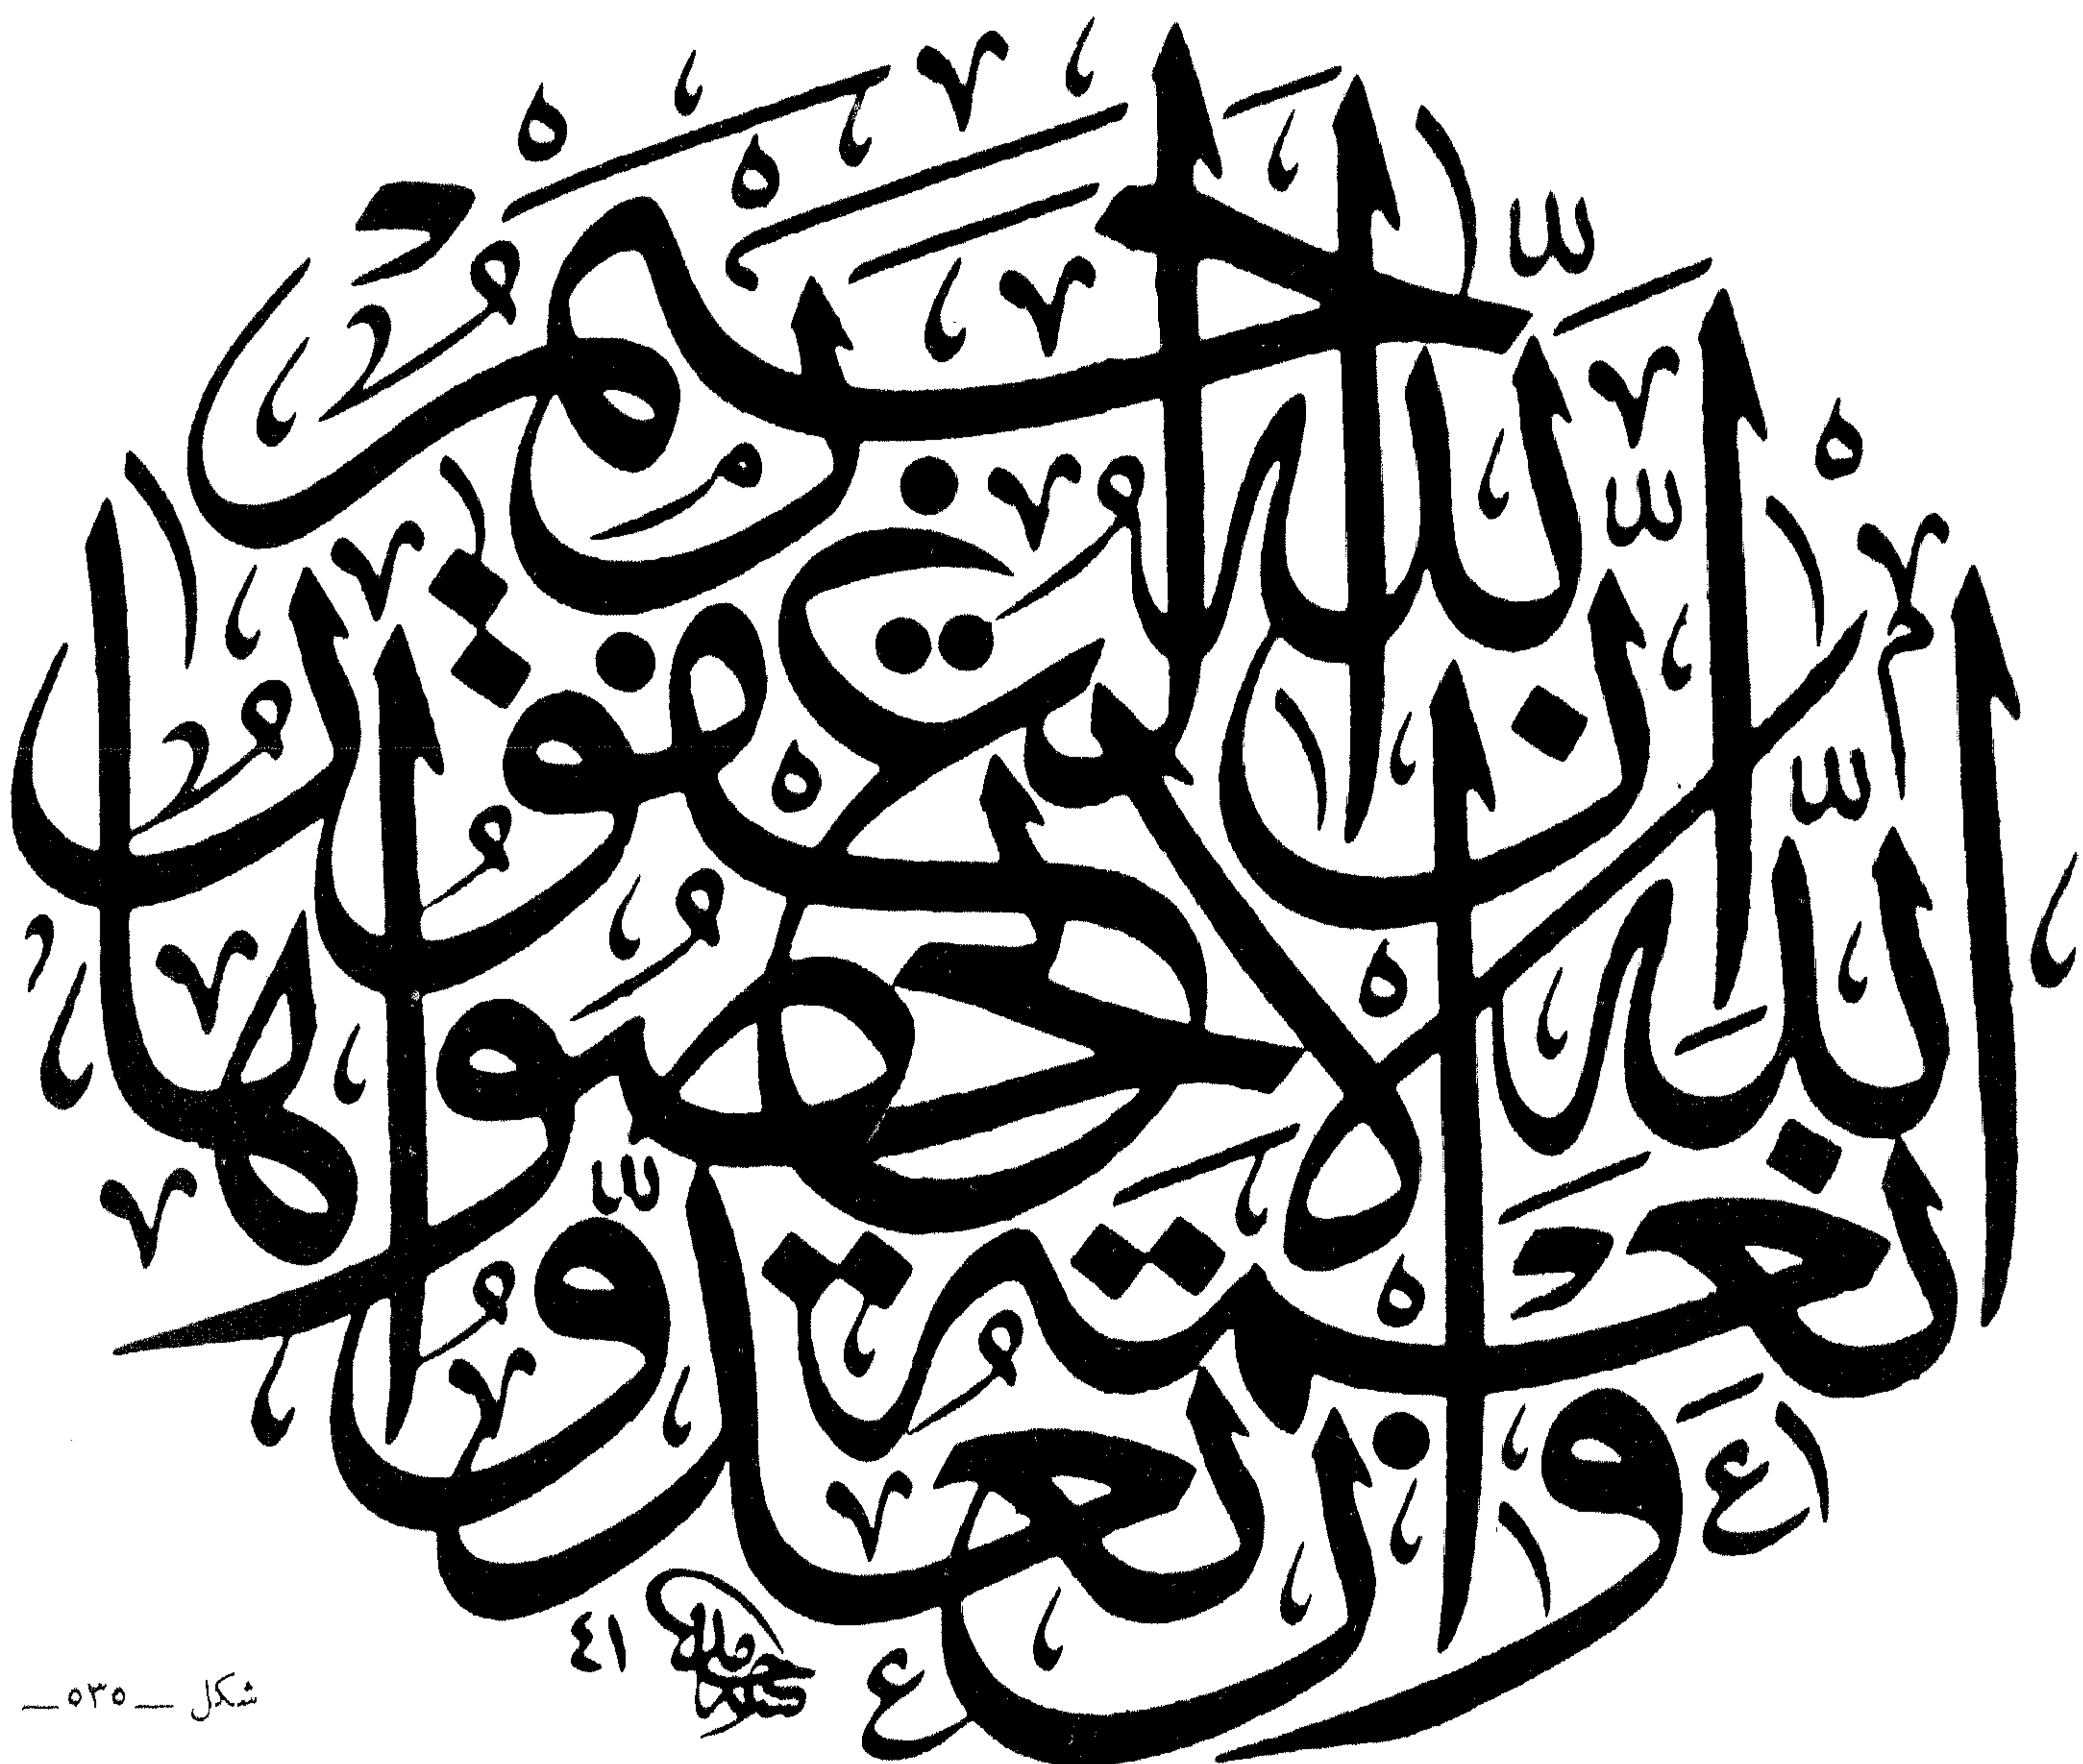 وَإِن تَعُدُّوا نِعْمَةَ اللَّهِ لَا تُحْصُوهَا إِنَّ اللَّهَ لَغَفُورٌ رَّحِيمٌ
٤١
شكل — ٥٣٥ —